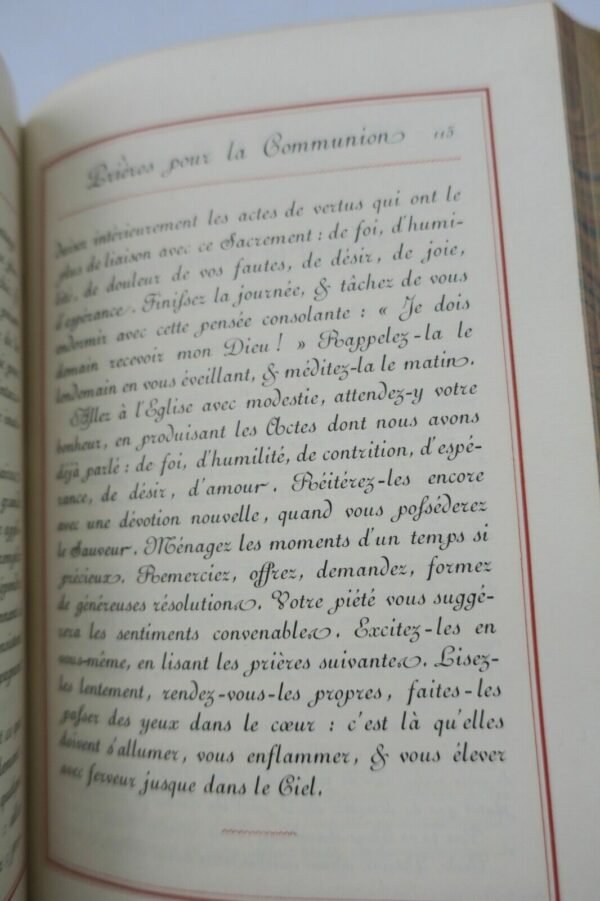 Prières pour la Communion 115
intérieurement les actes de vertus qui ont le
plus de liaison avec ce Sacrement : de foi, d'humi-
lité, de douleur de vos fautes, de désir, de joie,
d'espérance. Finiſsez la journée, & tâchez de vous
endormir avec cette pensée consolante : « Je dois
demain recevoir mon Dieu ! » Rappelez-la le
lendemain en vous éveillant, & méditez-la le matin.
Allez à l'Eglise avec modestie, attendez-y votre
bonheur, en produisant les Actes dont nous avons
déjà parlé : de foi, d'humilité, de contrition, d'espé-
rance, de désir, d'amour. Réitérez-les encore
avec une dévotion nouvelle, quand vous poſséderez
le Sauveur. Ménagez les moments d'un temps si
précieux. Remerciez, offrez, demandez, formez
de généreuses résolutions. Votre piété vous suggé-
rera les sentiments convenables. Excitez-les en
vous-même, en lisant les prières suivantes. Lisez-
les lentement, rendez-vous-les propres, faites-les
paſser des yeux dans le cœur : c'est là qu'elles
doivent s'allumer, vous enflammer, & vous élever
avec ferveur jusque dans le Ciel.